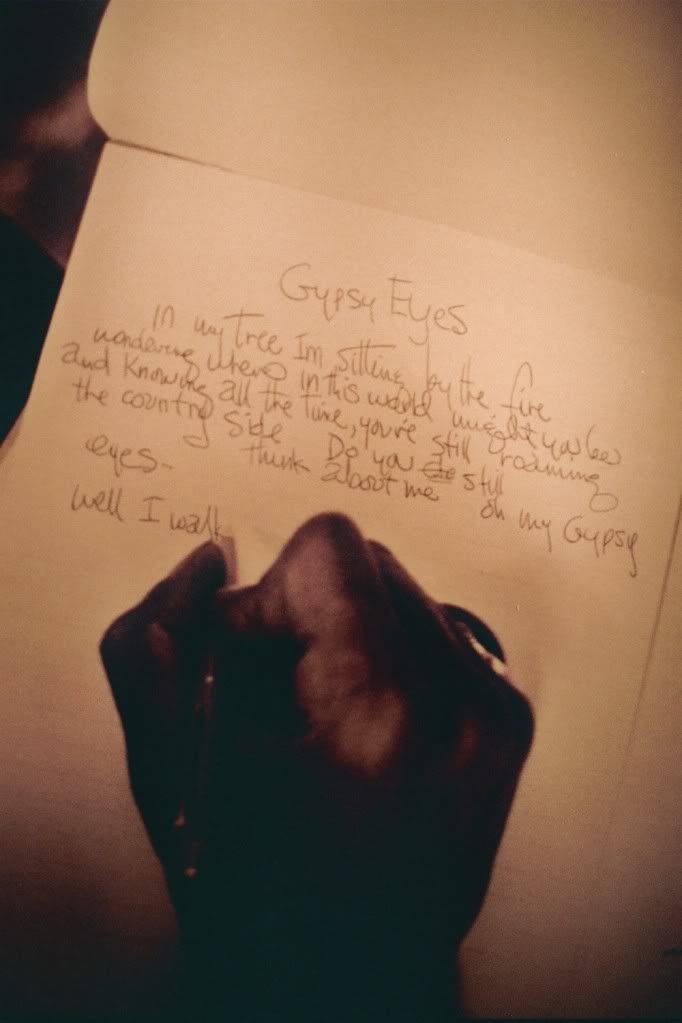 Gypsy Eyes
In my Tree Im sitting by the fire
wondering where in this world might you bee
and Knowing all the time, you're still roaming
the country side Do you still
think about me oh my Gypsy
eyes -
well I walk